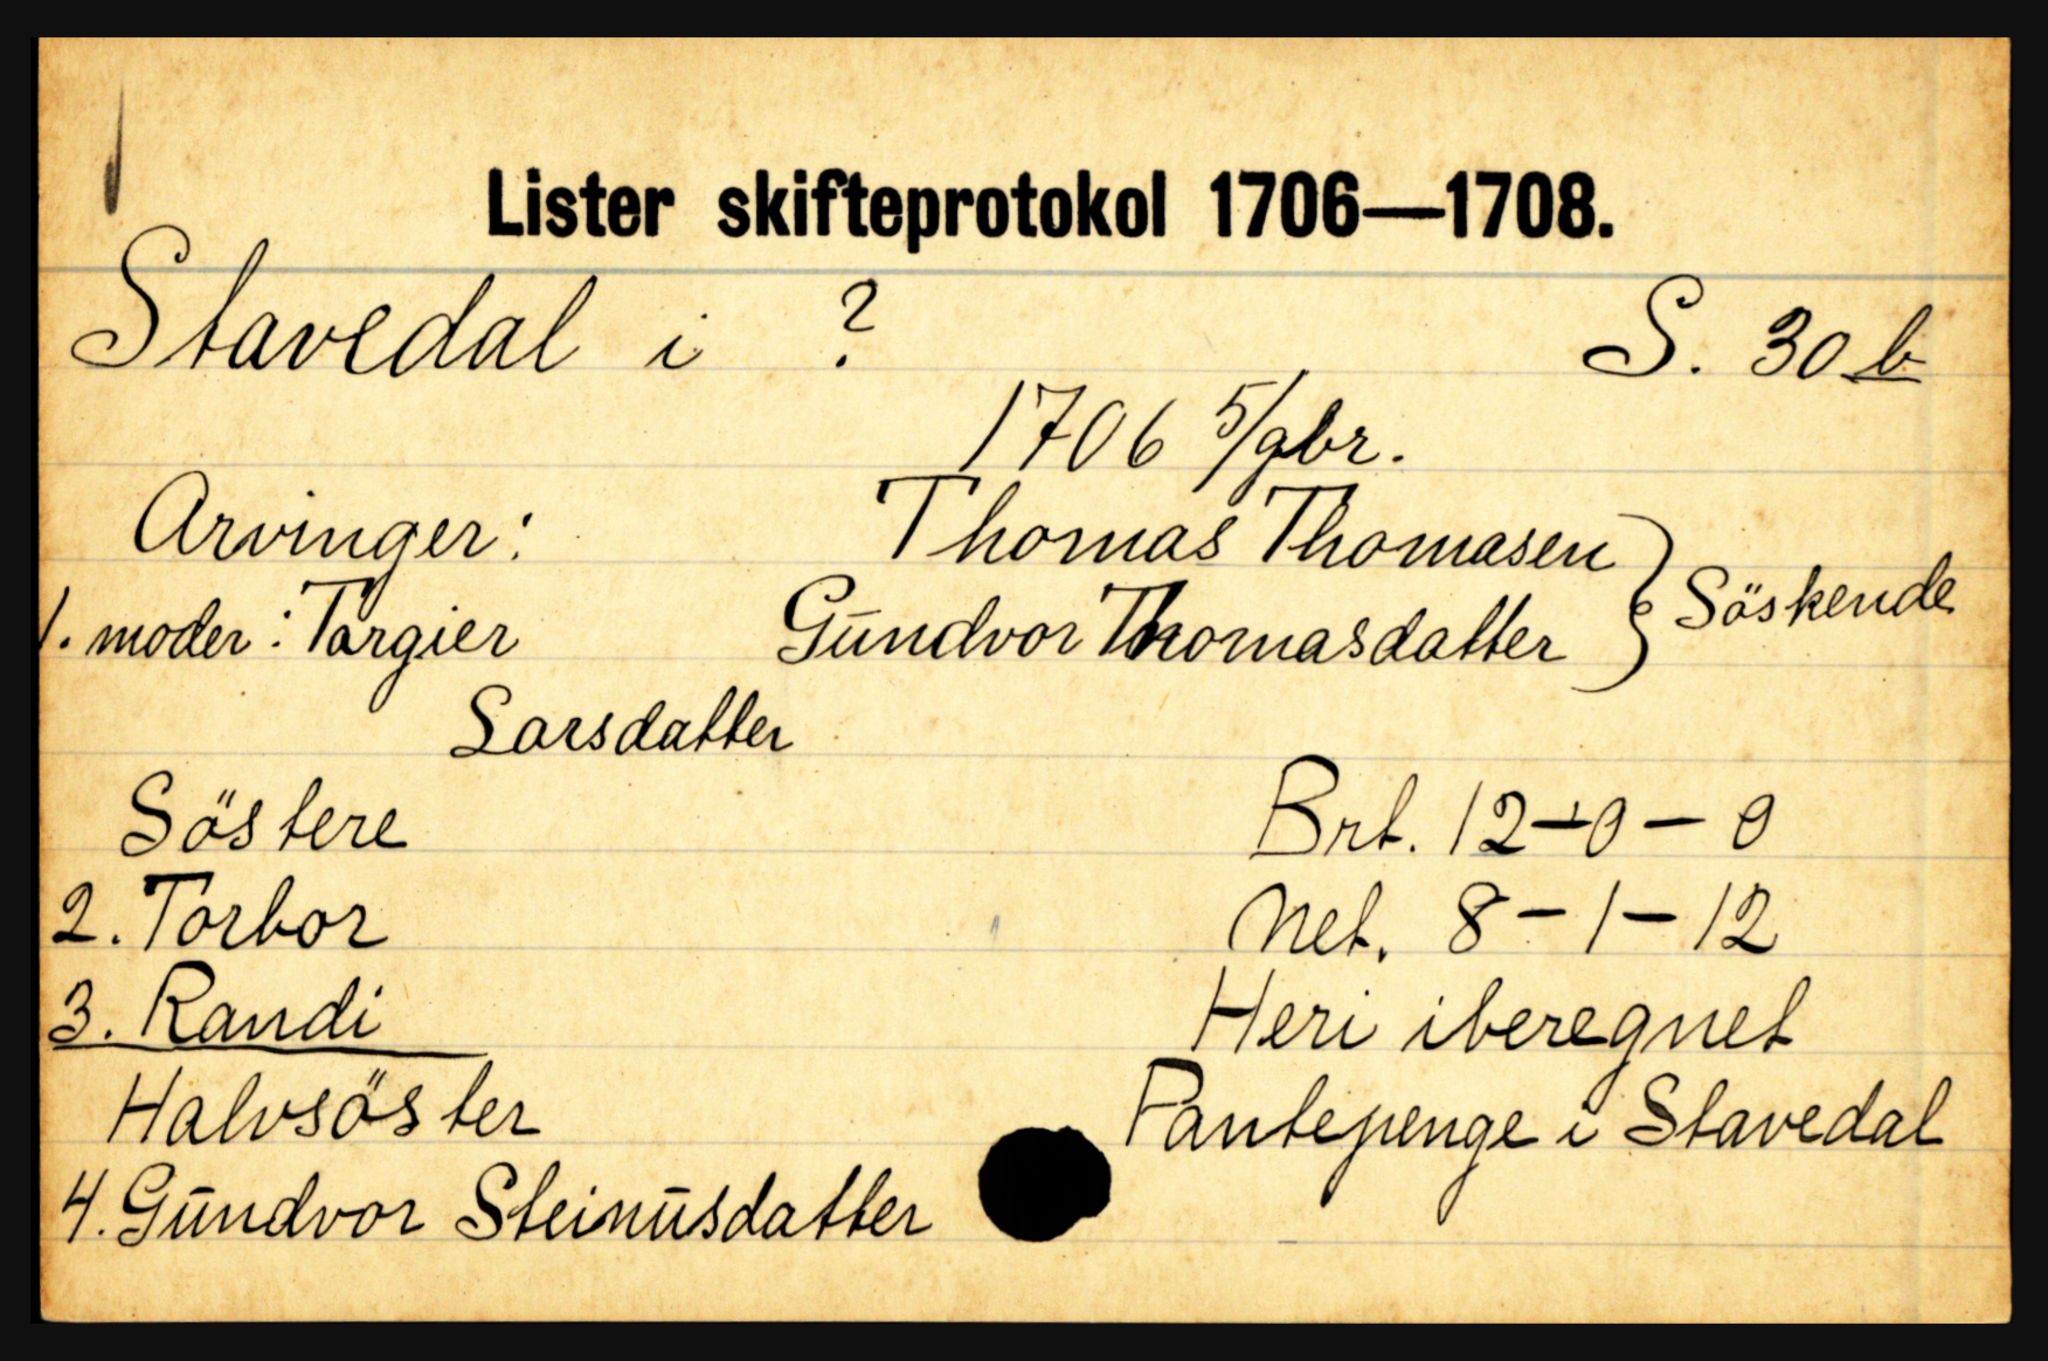 Lister skifteprotokol 1706—1708.
Stavedal i ? S. 30 b
1706 5/9br.
Arvinger: Thomas Thomasen
1. moder: Torgier Gundvor Thomasdatter } Söskende
Larsdatter
Söstere Brt. 12-0-0
2. Torbor Net. 8-1-12
3. Randi Heri iberegnet
Halvsöster Pantepenge i Stavedal
4. Gundvor Steinusdatter